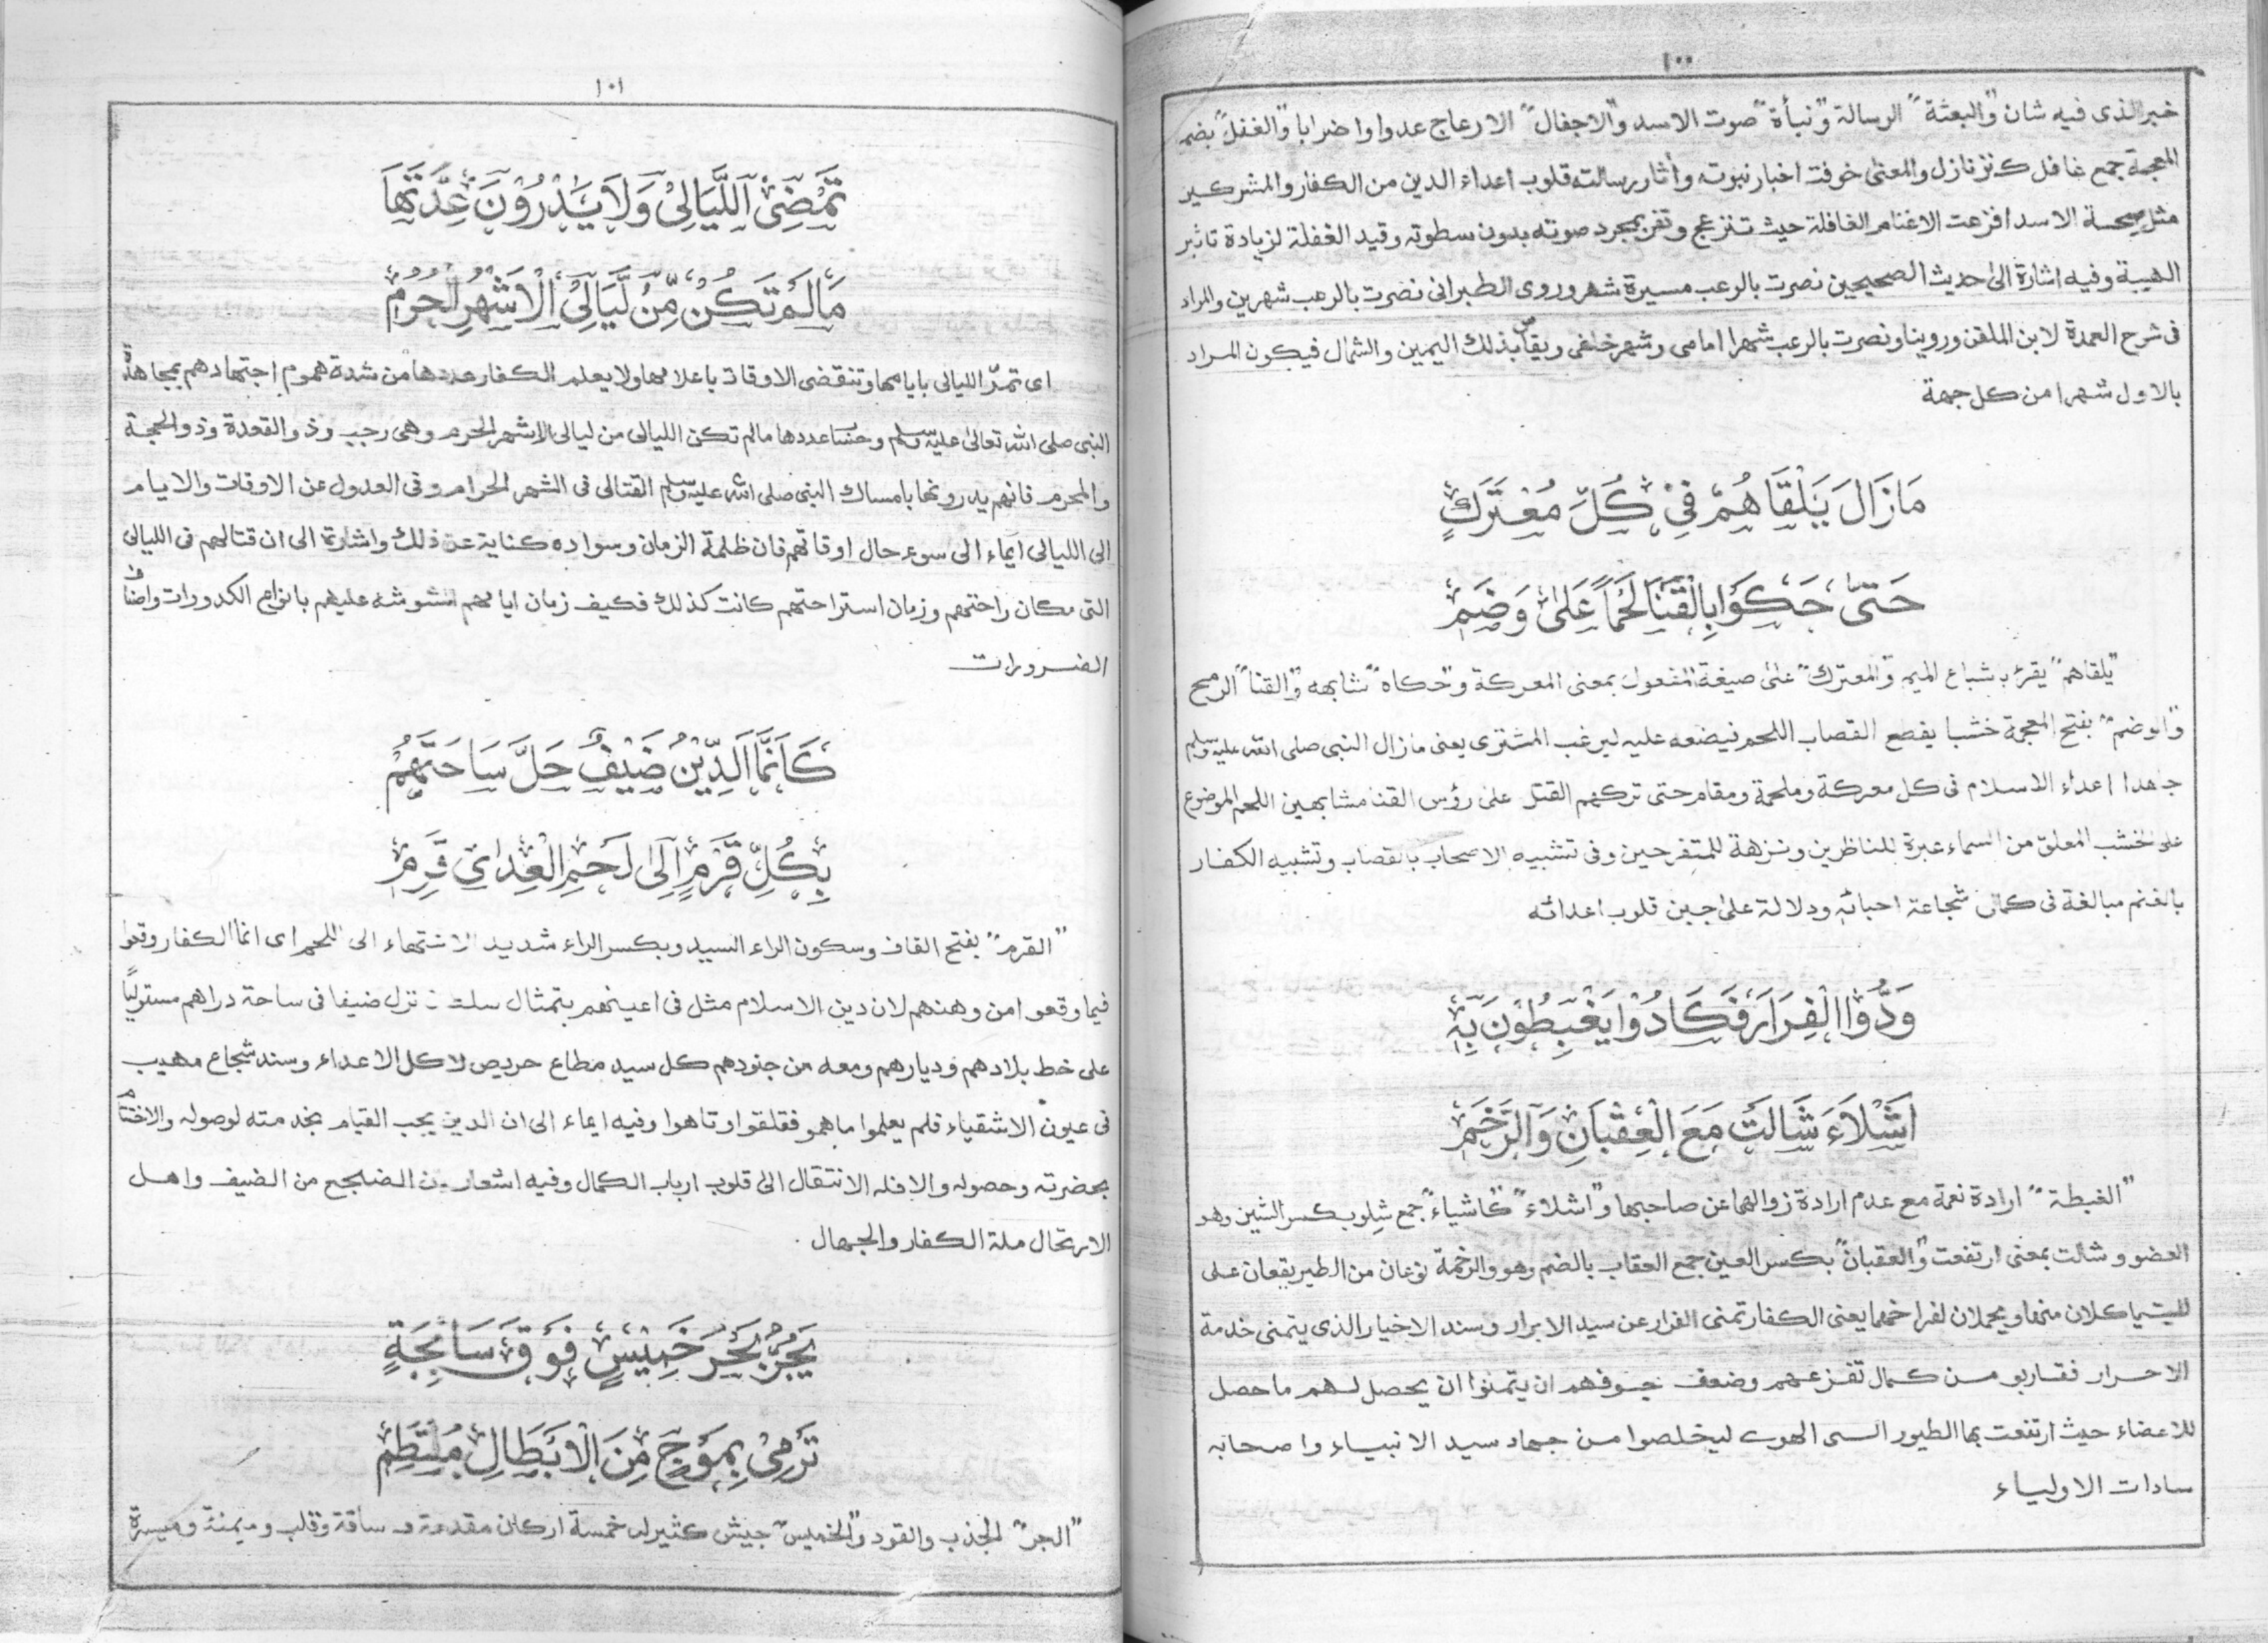 ١٠٠
خبر الذى فيه شان و"البعثة" الرسالة و"نبأة" صوت الاسد و"الاجفال" الارعاج عدوا واضرابا و"الغفل" بضم
المعجمة جمع غافل كنزنازل والمعنى خوفت اخبار نبوته وأثار رسالته قلوب اعداء الدين من الكفار والمشركين
مثل صيحة الاسد افزعت الاغنام الغافلة حيث تنزعج وتفر بمجرد صوته بدون سطوته وقيد الغفلة لزيادة تاثير
الهيبة وفيه اشارة الى حديث الصحيحين نصرت بالرعب مسيرة شهر وروى الطبرانى نصرت بالرعب شهرين والمراد
فى شرح العمدة لابن الملقن وروينا ونصرت بالرعب شهرا امامى وشهر خلفى ويقاس بذلك اليمين والشمال فيكون المراد
بالاول شهرا من كل جهة
مَازَالَ يَلْقَاهُمْ فِىْ كُلِّ مُعْتَرَكٍ
حَتّٰى حَكَوْا بِالْقَنَا لَحْمًا عَلٰى وَضَمٖ
"يلقاهم" يقرئ بشباع الميم و"المعترك" على صيغة المفعول بمعنى المعركة و"حكاه" شابهه و"القنا" الرمح
و"الوضم" بفتح المعجمة خشبا يقصع القصاب اللحم فيضعه عليه ليرغب المشترى يعنى مازال النبى صلى الله عليه وسلم
جاهدا اعداء الاسلام فى كل معركة وملحمة ومقام حتى تركهم القتل على رؤس القنا مشابهين اللحم الموضوع
على الخشب المعلق من السماء عبرة للناظرين ونزهة للمتفرحين وفى تشبيه الاصحاب بالقصاب وتشبيه الكفار
بالغنم مبالغة فى كمال شجاعة احبائه ودلالة على جبن قلوب اعدائه
وَدُّوا الْفِرَارَ فَكَادُوْا يَغْبِطُوْنَ بِهٖ
اَشْلَاءَ شَالَتْ مَعَ الْعِقْبَانِ وَالرَّخَمٖ
"الغبطة" ارادة نعمة مع عدم ارادة زوالها عن صاحبها و"اشلاء" كاشياء جمع شِلو بكسر الشين وهو
العضو و شالت بمعنى ارتفعت و"العقبان" بكسر العين جمع العقاب بالضم وهو والرخمة نوعان من الطير يقعان على
الميت ياكلان منها ويحملان لفراخهما يعنى الكفار تمنى الفرار عن سيد الابرار وسند الاخيار الذى يتمنى خدمة
الاحرار فقاربو من كمال تفزعهم وضعف جوفهم ان يتمنوا ان يحصل لهم ما حصل
للاعضاء حيث ارتفعت بها الطيور الى الهوى ليخلصوا من جهاد سيد الانبياء واصحابه
سادات الاولياء
١٠١
تَمْضِى اللَّيَالِىْ وَلَا يَدْرُوْنَ عِدَّتَهَا
مَالَمْ تَكُنْ مِّنْ لَّيَالِى الْاَشْهُرِ الْحُرُمٖ
اى تمرّ الليالى بايامها وتنقضى الاوقات باعلامها ولا يعلم الكفار عددها من شدة هموم اجتهادهم بمجاهدة
النبى صلى الله تعالى عليه وسلم وحسا عددها مالم تكن الليالى من ليالى الاشهر الحرم وهى رجب وذ والقعدة وذ والحجة
والمحرم فانهم يدرونها بامساك النبى صلى الله عليه وسلم القتالى فى الشهر الحرام وفى العدول عن الاوقات والايام
الى الليالى ايماء الى سوء حال اوقاتهم فان ظلمة الزمان وسواده كناية عن ذلك واشارة الى ان قتالهم فى الليالى
التى مكان راحتهم وزمان استراحتهم كانت كذلك فكيف زمان ايامهم المشوشه عليهم بانواع الكدورات واصناف
الضرورات
كَاَنَّمَا الدِّيْنُ ضَيْفٌ حَلَّ سَاحَتَهُمْ
بِكُلِّ قَرْمٍ اِلٰى لَحْمِ الْعِدٰى قَرِمٖ
"القرم" بفتح القاف وسكون الراء السيد وبكسر الراء شديد الاشتهاء الى اللحم اى انما الكفار وقعوا
فيما وقعوا من وهنهم لان دين الاسلام مثل فى اعينهم بتمثال نزل ضيفا فى ساحة دراهم مستوليًا
على خط بلادهم وديارهم ومعه من جنودهم كل سيد مطاع حريص لاكل الاعداء وسند شجاع مهيب
فى عيون الاشقياء فلم يعلموا ماهمو فقلقوا وتاهوا وفيه ايماء الى ان الدين يجب القيام بخدمته لوصوله والاختتام
بحضرته وحصوله والافله الانتقال الى قلوب ارباب الكمال وفيه اشعار من الضيف واهل
الارتحال ملة الكفار والجهال
يَجُرُّ بَحْرَ خَمِيْسٍ فَوْقَ سَابِحَةٍ
تَرْمِىْ بِمَوْجٍ مِّنَ الْاَبْطَالِ مُلْتَطِمٖ
"الجر" الجذب والقود و"الخميس" جيش كثير له خمسة اركان مقدمة وساقة وقلب وميمنة وميسرة